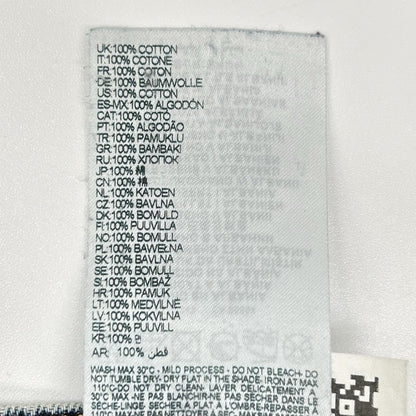 UK:100% COTTON
IT:100% COTONE
FR:100% COTON
DE:100% BAUMWOLLE
US:100% COTTON
ES-MX:100% ALGODÓN
CAT:100% COTÓ
PT:100% ALGODÃO
TR:100% PAMUKLU
GR:100% BAMBAKI
RU:100% ХЛОПОК
JP:100% 綿
CN:100% 棉
NL:100% KATOEN
CZ:100% BAVLNA
DK:100% BOMULD
FI:100% PUUVILLA
NO:100% BOMULL
PL:100% BAWEŁNA
SK:100% BAVLNA
SE:100% BOMULL
SI:100% BOMBAŽ
HR:100% PAMUK
LT:100% MEDVILNĖ
LV:100% KOKVILNA
EE:100% PUUVILL
KR:100% 면
AR: 100% قطن
WASH MAX 30°C - MILD PROCESS - DO NOT BLEACH- DO
NOT TUMBLE DRY- DRY FLAT IN THE SHADE- IRON AT MAX
110°C-DO NOT DRY CLEAN- LAVER DELICATEMENT A
30°C MAX -NE PAS BLANCHIR-NE PAS SECHER DANS LE
SÈCHE-LINGE- SECHER A PLAT DANS L'OMBRE- REPASSER